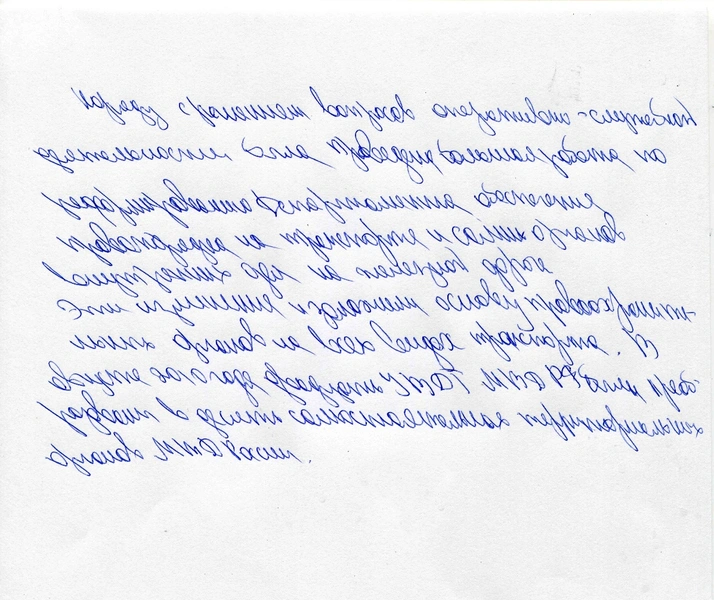 Наряду с решением вопросов оперативно-служебной
деятельности была проведена большая работа по
реформированию Департамента обеспечения
правопорядка на транспорте и самих органов
внутренних дел на железной дороге
Эти изменения заложили основу правоохраните-
льных органов на всех видах транспорта. В
августе 2010 года двадцать УВДТ МВД РФ были преоб-
разованы в десять самостоятельных территориальных
органов МВД России.